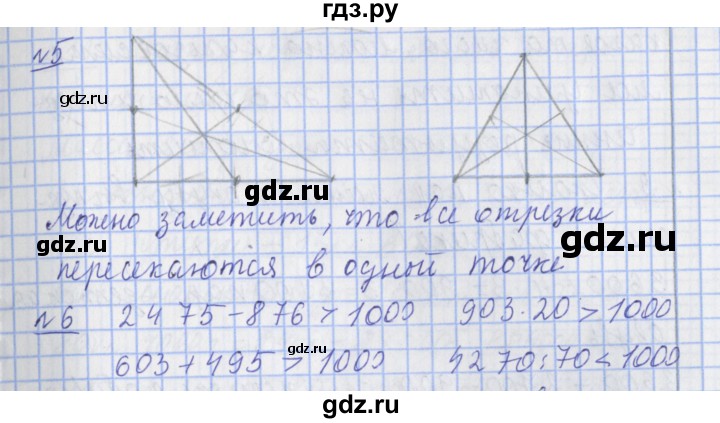 гдз.ру
№5
gdz.ru
gdz.ru
gdz.ru
Можно заметить, что все отрезки
gdz.ru
пересекаются в одный точке
№6 2475-876>1000 903·20>1000
gdz.ru
603+495>1000 4270:70<1000
gdz.ru